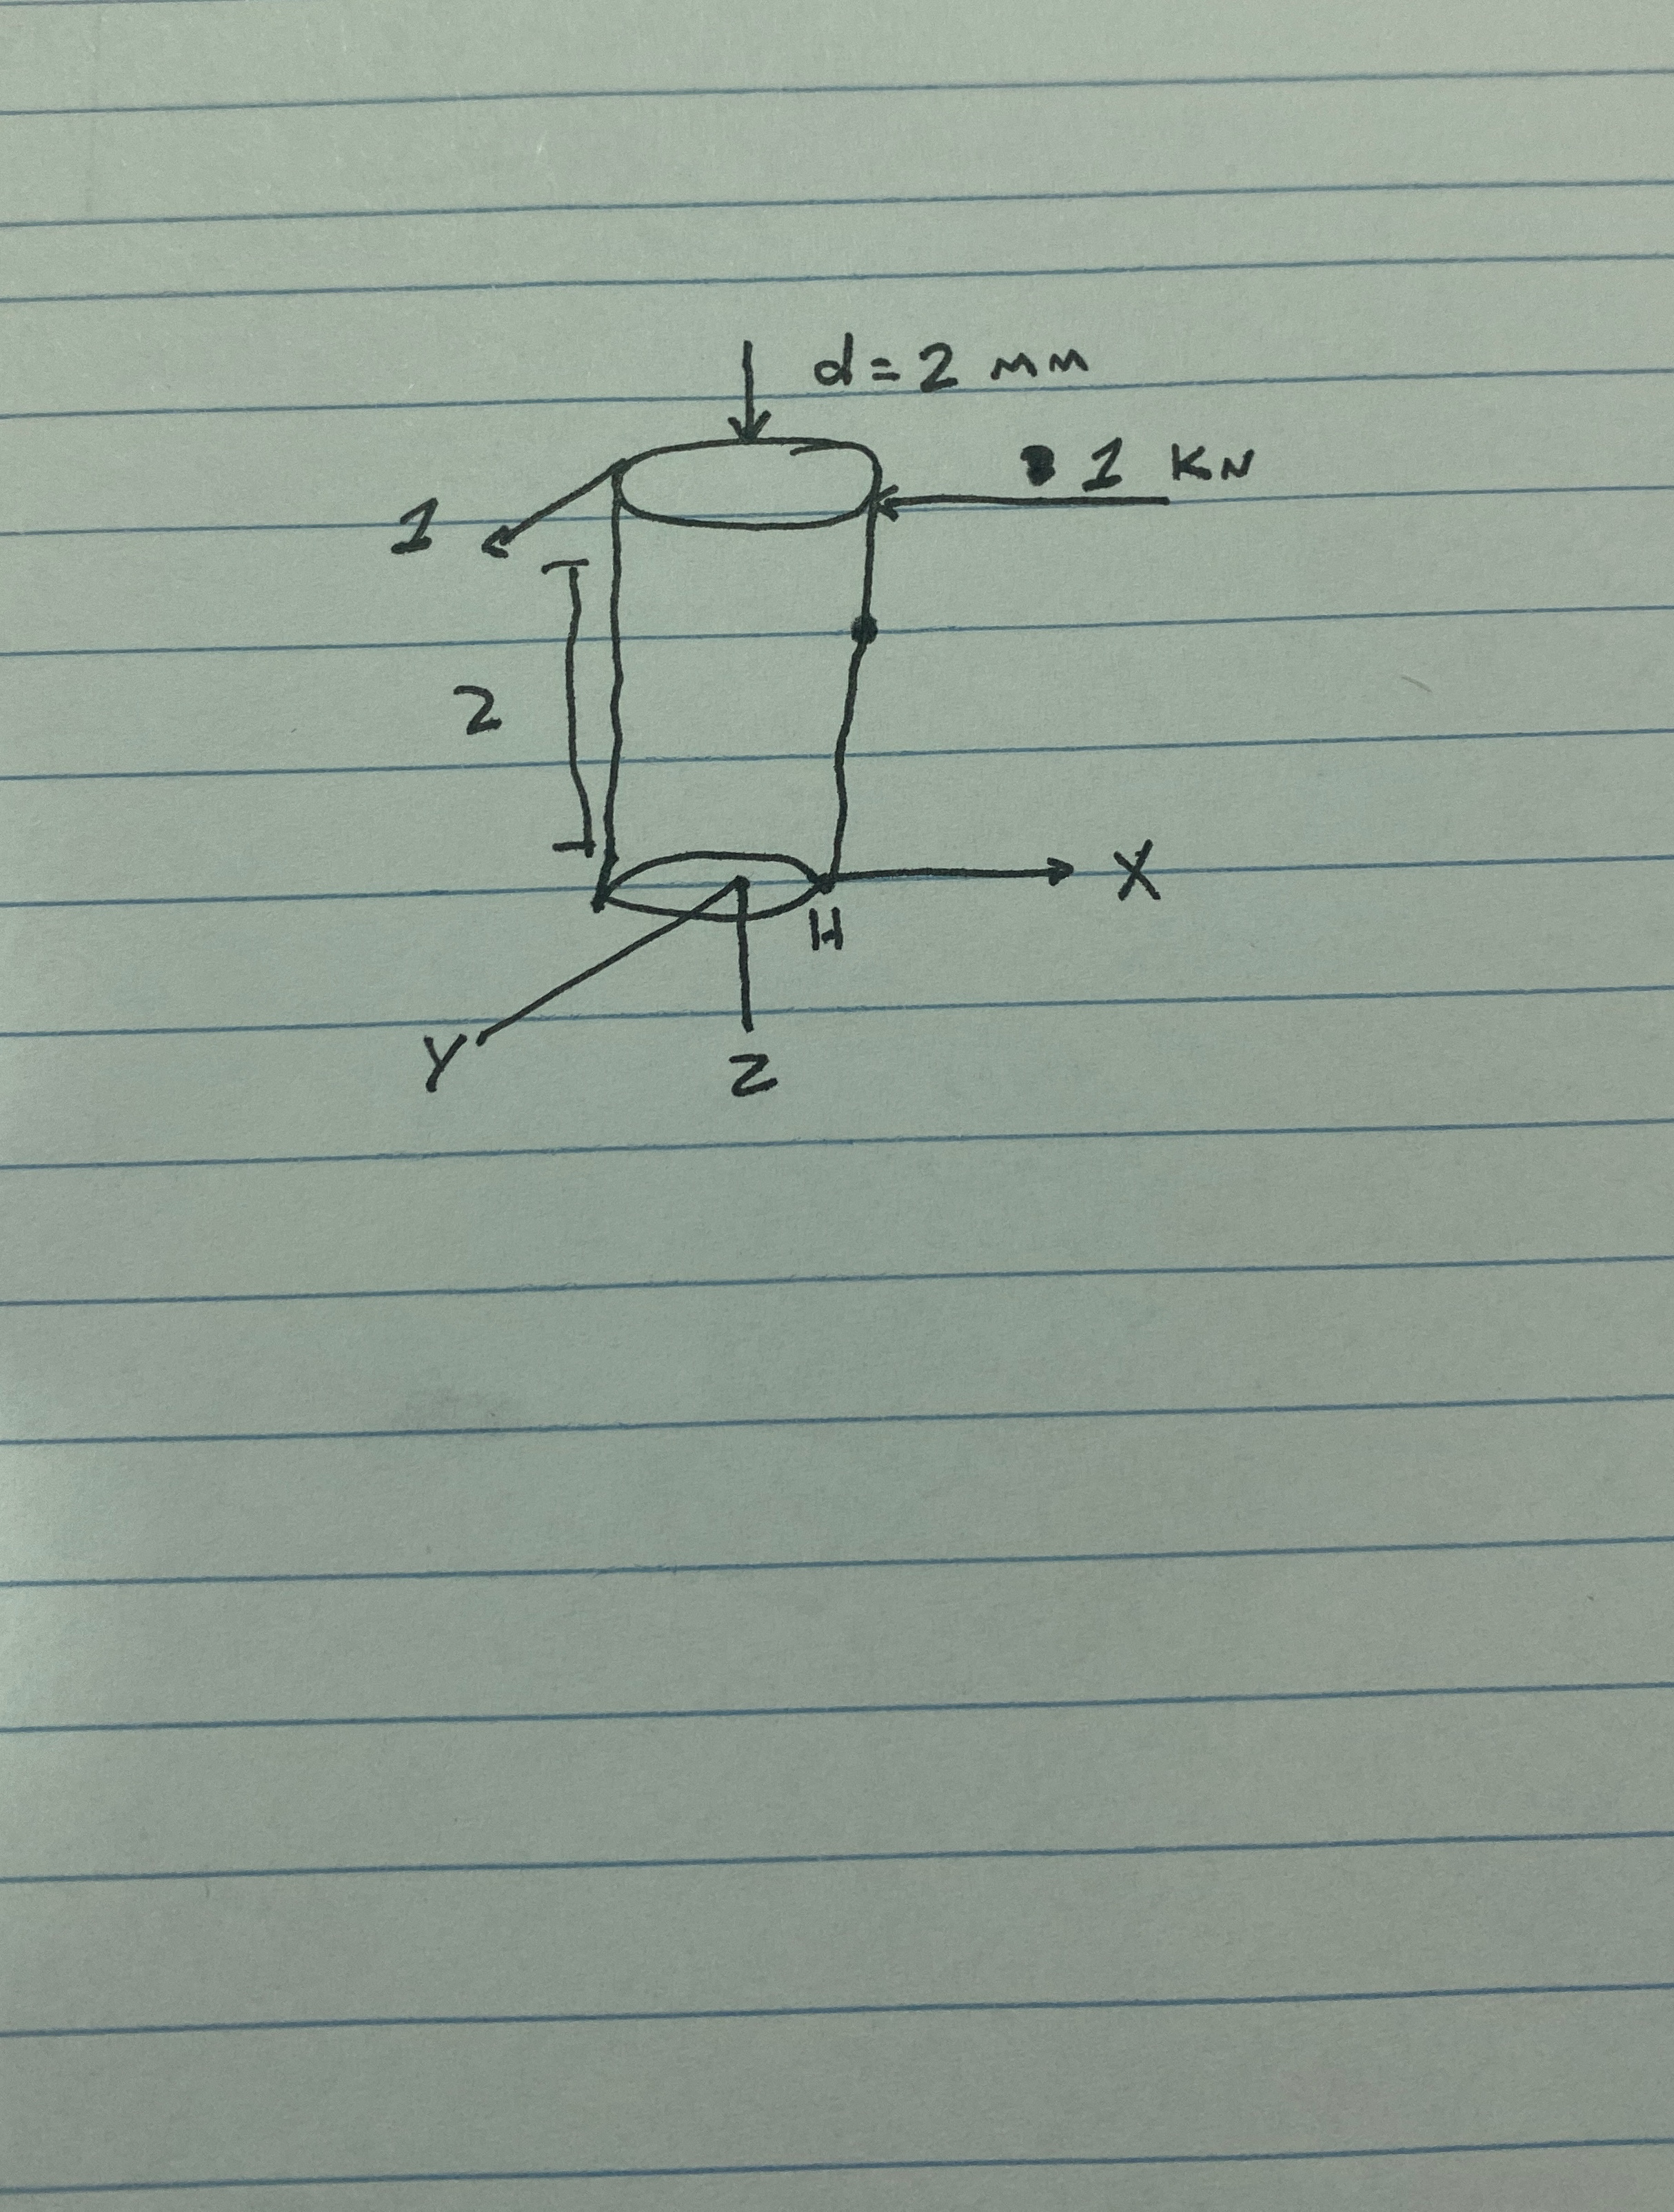 d = 2 mm
1 KN
1
2
X
H
Y
Z